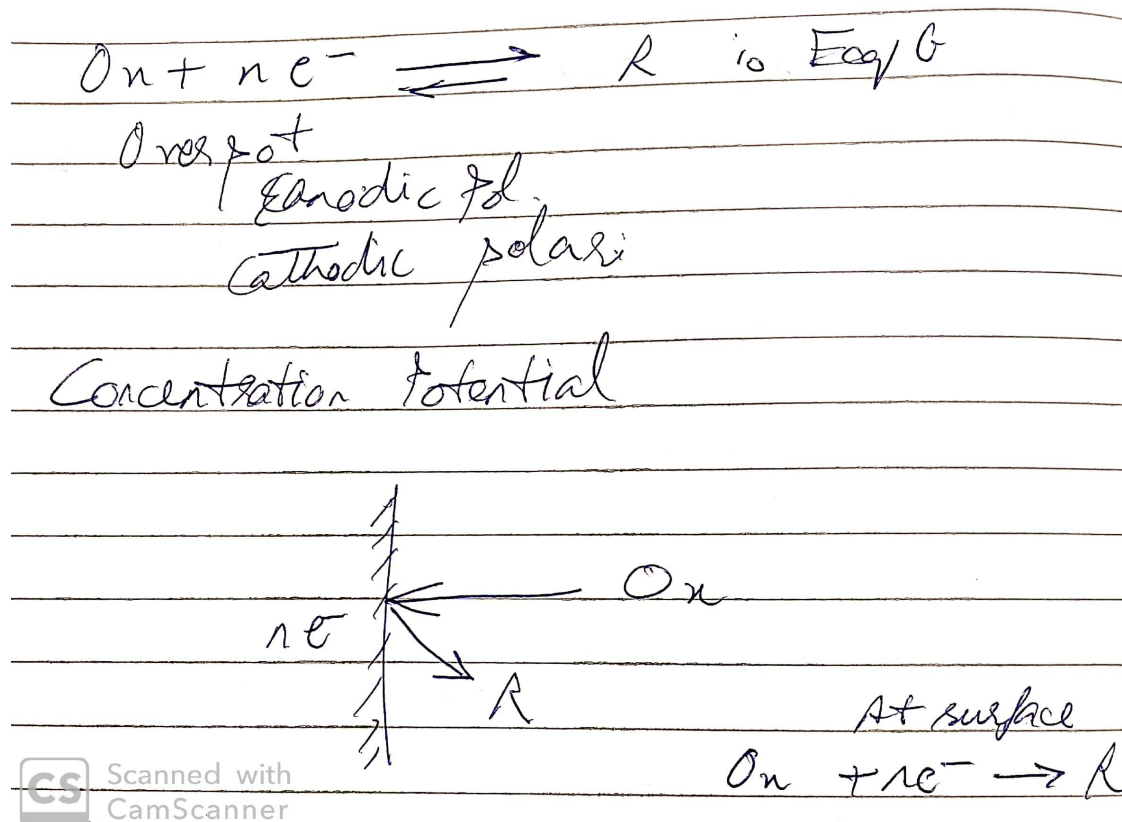 Ox + ne⁻ ⇌ R i₀ Eeq/G
Overpot
anodic pol.
Cathodic polari
Concentration Potential
Ox
ne⁻
R
At surface
Ox + ne⁻ → R
CS Scanned with
CamScanner